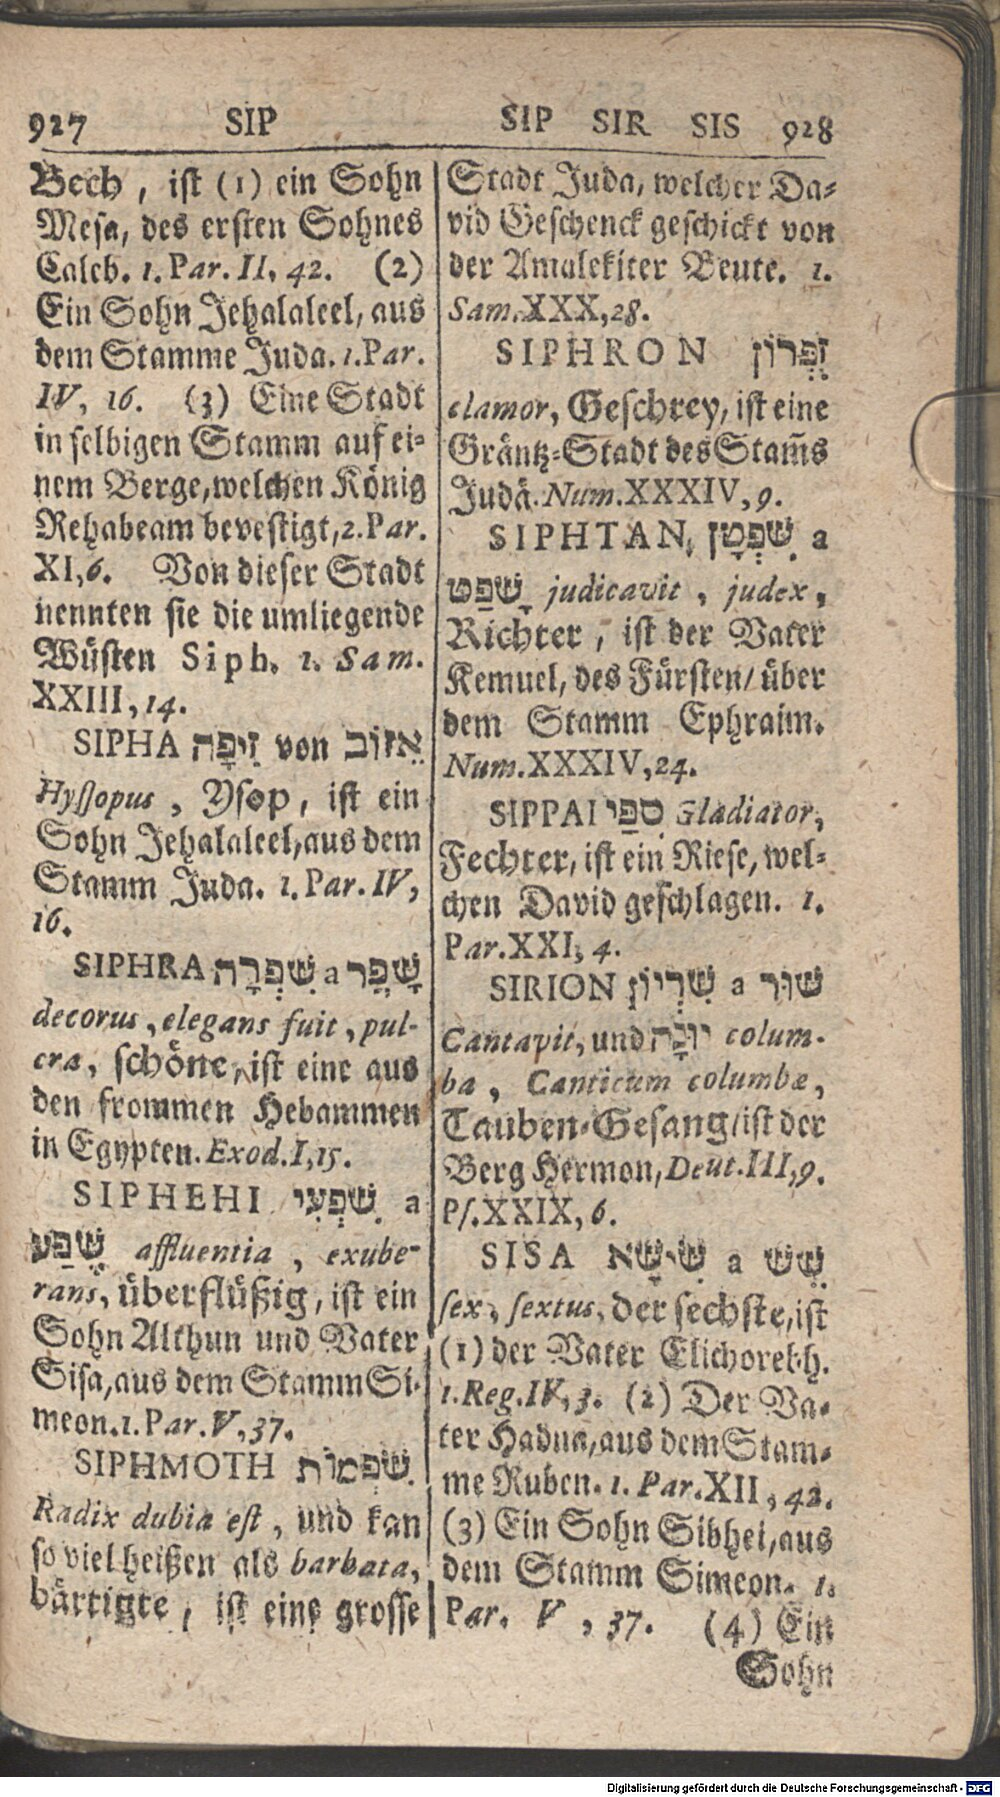 927 SIP
Bech, ist (1) ein Sohn
Mesa, des ersten Sohnes
Caleb. 1. Par. II, 42. (2)
Ein Sohn Jehalaleel, aus
dem Stamme Juda. 1. Par.
IV, 16. (3) Eine Stadt
in selbigen Stamm auf ei-
nem Berge, welchen König
Rehabeam bevestigt, 2. Par.
XI, 6. Von dieser Stadt
nennten sie die umliegende
Wüsten Siph. 1. Sam.
XXIII, 14.
SIPHA זִיפָה von אֵזוֹב
Hyssopus, Ysop, ist ein
Sohn Jehalaleel, aus dem
Stamm Juda. 1. Par. IV,
16.
SIPHRA שִׁפְרָה a שָׁפֶר
decorus, elegans fuit, pul-
cra, schöne, ist eine aus
den frommen Hebammen
in Egypten. Exod. I, 15.
SIPHEHI שִׁפְעִי a
שֶׁפַע affluentia, exube-
rans, überflüßig, ist ein
Sohn Althun und Vater
Sisa, aus dem Stamm Si-
meon. 1. Par. V, 37.
SIPHMOTH שִׂפְמוֹת
Radix dubia est, und kan
so viel heißen als barbata,
bärtigte, ist eine grosse
SIP SIR SIS 928
Stadt Juda, welcher Da-
vid Geschenck geschickt von
der Amalekiter Beute. 1.
Sam. XXX, 28.
SIPHRON זִפְרוֹן
clamor, Geschrey, ist eine
Gräntz-Stadt des Stam̄s
Judä. Num. XXXIV, 9.
SIPHTAN, שִׁפְטָן a
שָׁפַט judicavit, judex,
Richter, ist der Vater
Kemuel, des Fürsten/ über
dem Stamm Ephraim.
Num. XXXIV, 24.
SIPPAI סִפַּי Gladiator,
Fechter, ist ein Riese, wel-
chen David geschlagen. 1.
Par. XXI, 4.
SIRION שִׂרְיוֹן a שׁוּר
Cantavit, und יוֹנָה colum-
ba, Canticum columbæ,
Tauben-Gesang/ ist der
Berg Hermon, Deut. III, 9.
Ps. XXIX, 6.
SISA שִׁישָׁא a שֵׁשׁ
sex, sextus, der sechste, ist
(1) der Vater Elichoreph.
1. Reg. IV, 3. (2) Der Va-
ter Hadna, aus dem Stam-
me Ruben. 1. Par. XII, 42.
(3) Ein Sohn Sibhei, aus
dem Stamm Simeon. 1.
Par. V, 37. (4) Ein
Sohn
Digitalisierung gefördert durch die Deutsche Forschungsgemeinschaft - DFG